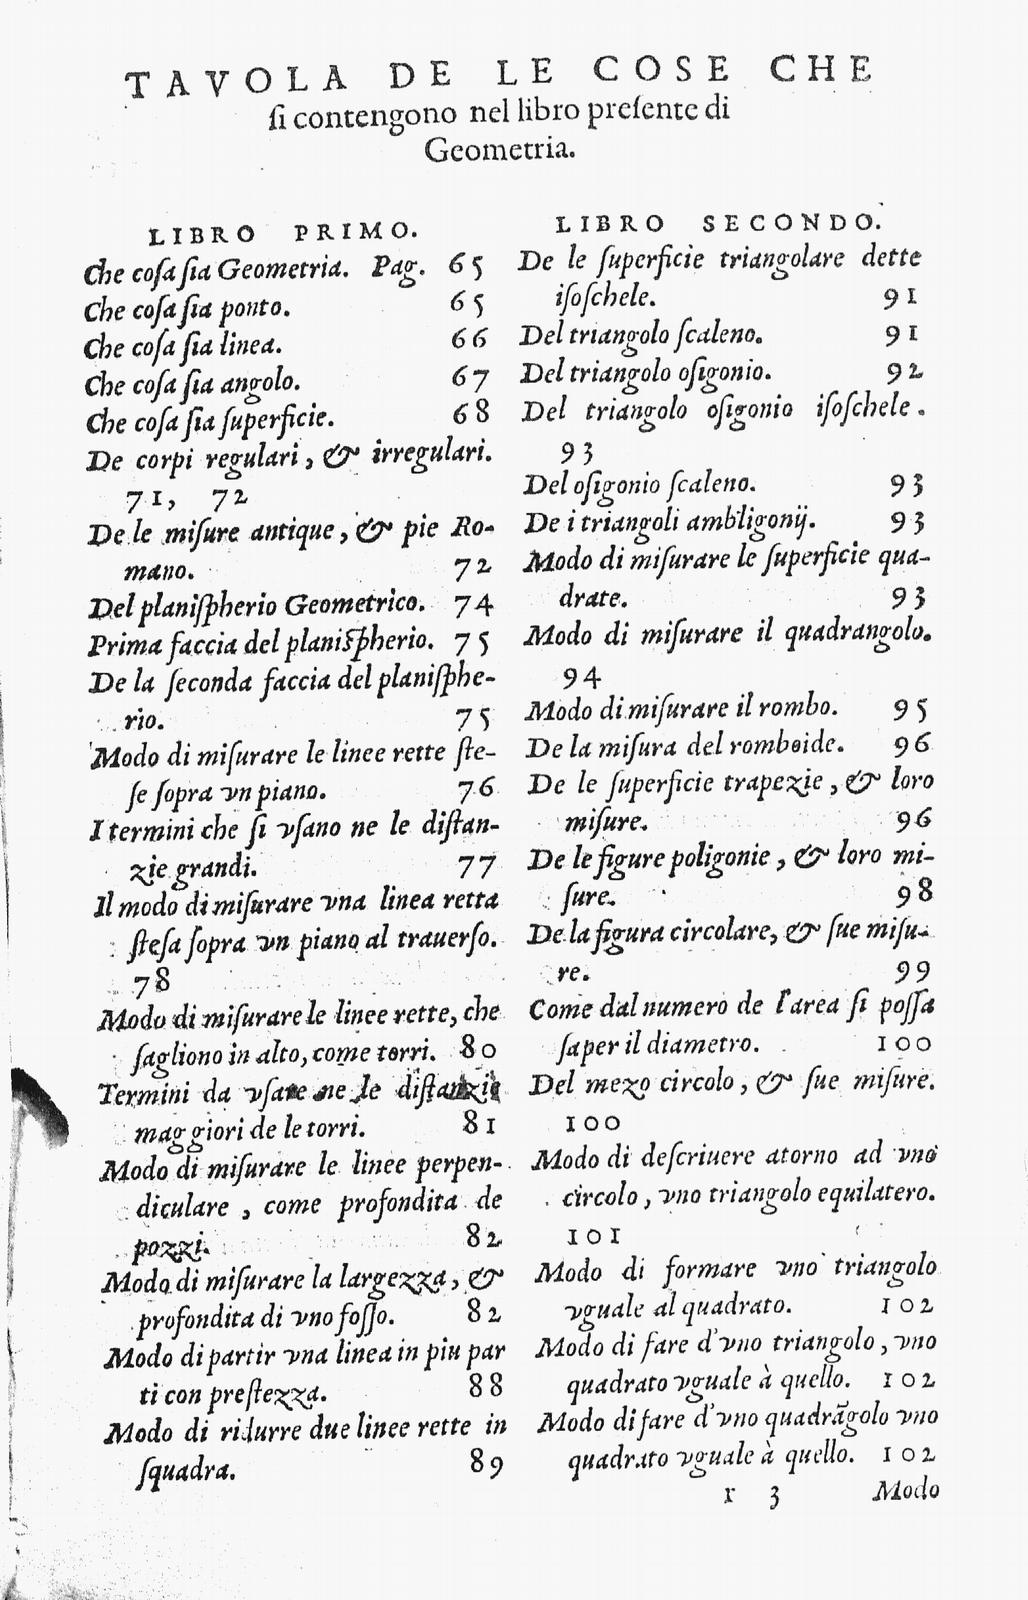 TAVOLA DE LE COSE CHE
ſi contengono nel libro preſente di
Geometria.
LIBRO PRIMO.
Che coſa ſia Geometria. Pag. 65
Che coſa ſia ponto. 65
Che coſa ſia linea. 66
Che coſa ſia angolo. 67
Che coſa ſia ſuperficie. 68
De corpi regulari, & irregulari.
71, 72
De le miſure antique, & pie Ro-
mano. 72
Del planiſpherio Geometrico. 74
Prima faccia del planiſpherio. 75
De la ſeconda faccia del planiſphe-
rio. 75
Modo di miſurare le linee rette ſte-
ſe ſopra vn piano. 76
I termini che ſi vſano ne le diſtan-
zie grandi. 77
Il modo di miſurare vna linea retta
ſteſa ſopra vn piano al trauerſo.
78
Modo di miſurare le linee rette, che
ſagliono in alto, come torri. 80
Termini da vſare ne le diſtanzie
maggiori de le torri. 81
Modo di miſurare le linee perpen-
diculare, come profondita de
pozzi. 82
Modo di miſurare la largezza, &
profondita di vno foſſo. 82
Modo di partir vna linea in piu par
ti con preſtezza. 88
Modo di ridurre due linee rette in
ſquadra. 89
LIBRO SECONDO.
De le ſuperficie triangolare dette
iſoſchele. 91
Del triangolo ſcaleno. 91
Del triangolo oſigonio. 92
Del triangolo oſigonio iſoſchele.
93
Del oſigonio ſcaleno. 93
De i triangoli ambligonij. 93
Modo di miſurare le ſuperficie qua-
drate. 93
Modo di miſurare il quadrangolo.
94
Modo di miſurare il rombo. 95
De la miſura del romboide. 96
De le ſuperficie trapezie, & loro
miſure. 96
De le figure poligonie, & loro mi-
ſure. 98
De la figura circolare, & ſue miſu-
re. 99
Come dal numero de l'area ſi poſſa
ſaper il diametro. 100
Del mezo circolo, & ſue miſure.
100
Modo di deſcriuere atorno ad vno
circolo, vno triangolo equilatero.
101
Modo di formare vno triangolo
vguale al quadrato. 102
Modo di fare d'vno triangolo, vno
quadrato vguale à quello. 102
Modo di fare d'vno quadrãgolo vno
quadrato vguale à quello. 102
r 3 Modo